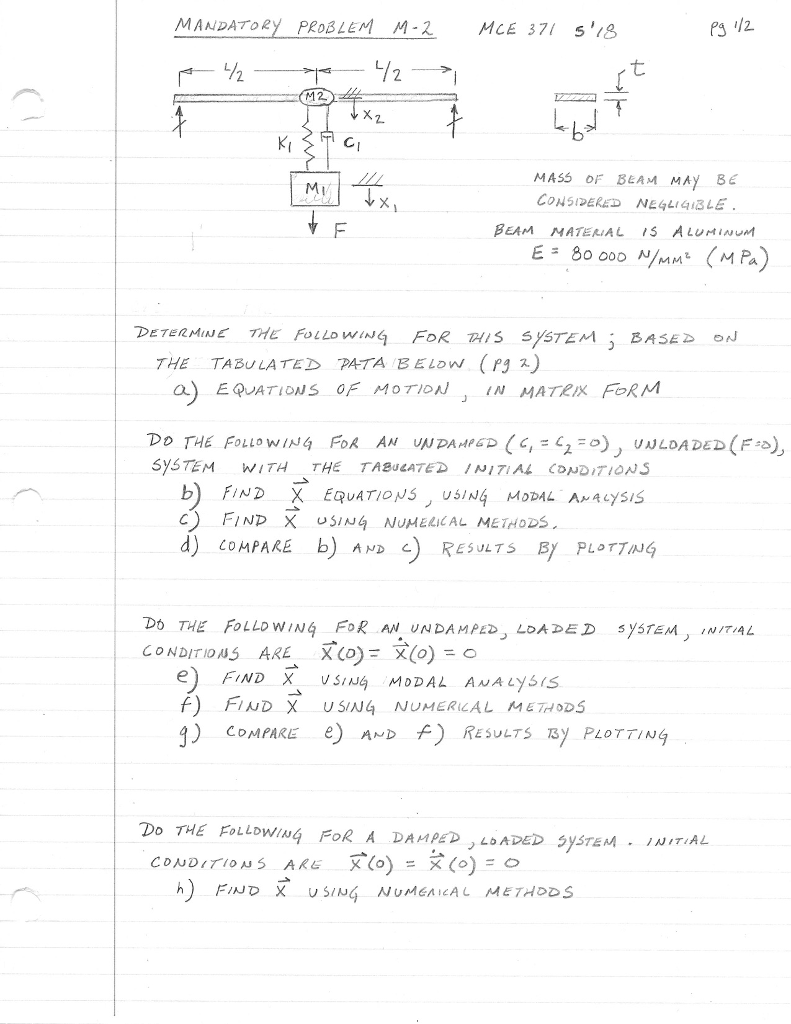 MANDATORY PROBLEM M-2 MCE 371 S'18 pg 1/2
L/2 L/2 t
M2
X2
K1 C1 b
M1
X1
F
MASS OF BEAM MAY BE
CONSIDERED NEGLIGIBLE.
BEAM MATERIAL IS ALUMINUM
E = 80 000 N/MM² (MPa)
DETERMINE THE FOLLOWING FOR THIS SYSTEM; BASED ON
THE TABULATED DATA BELOW (pg 2)
a) EQUATIONS OF MOTION, IN MATRIX FORM
DO THE FOLLOWING FOR AN UNDAMPED (C₁ = C₂ = 0), UNLOADED (F=0),
SYSTEM WITH THE TABULATED INITIAL CONDITIONS
b) FIND X⃗ EQUATIONS, USING MODAL ANALYSIS
c) FIND X⃗ USING NUMERICAL METHODS.
d) COMPARE b) AND c) RESULTS BY PLOTTING
DO THE FOLLOWING FOR AN UNDAMPED, LOADED SYSTEM, INITIAL
CONDITIONS ARE X⃗(0) = Ẋ⃗(0) = 0
e) FIND X⃗ USING MODAL ANALYSIS
f) FIND X⃗ USING NUMERICAL METHODS
g) COMPARE e) AND f) RESULTS BY PLOTTING
DO THE FOLLOWING FOR A DAMPED, LOADED SYSTEM. INITIAL
CONDITIONS ARE X⃗(0) = Ẋ⃗(0) = 0
h) FIND X⃗ USING NUMERICAL METHODS